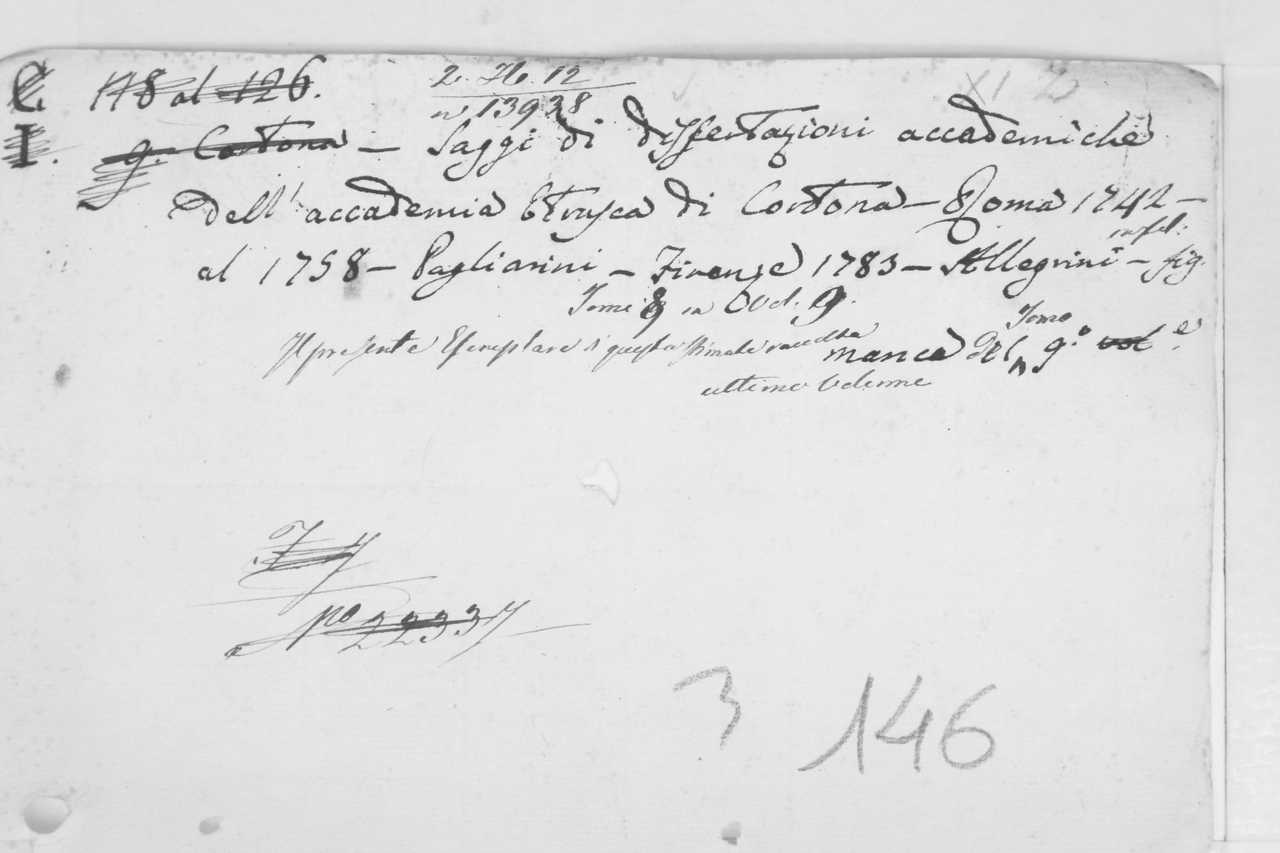 C. 118 al 126. 2. H. 12
n. 13938 XI
I. g. Cortona — Saggi di dissertazioni accademiche
dell' accademia Etrusca di Cortona — Roma 1742 —
al 1758 — Pagliarini — Firenze 1783 — Allegrini — fig.
Tomi 8 in Vol. 9.
Tomo
Il presente Esemplare di questa raccolta manca del 9.º vol.e
ultimo Volume
Nº 22337
3 146